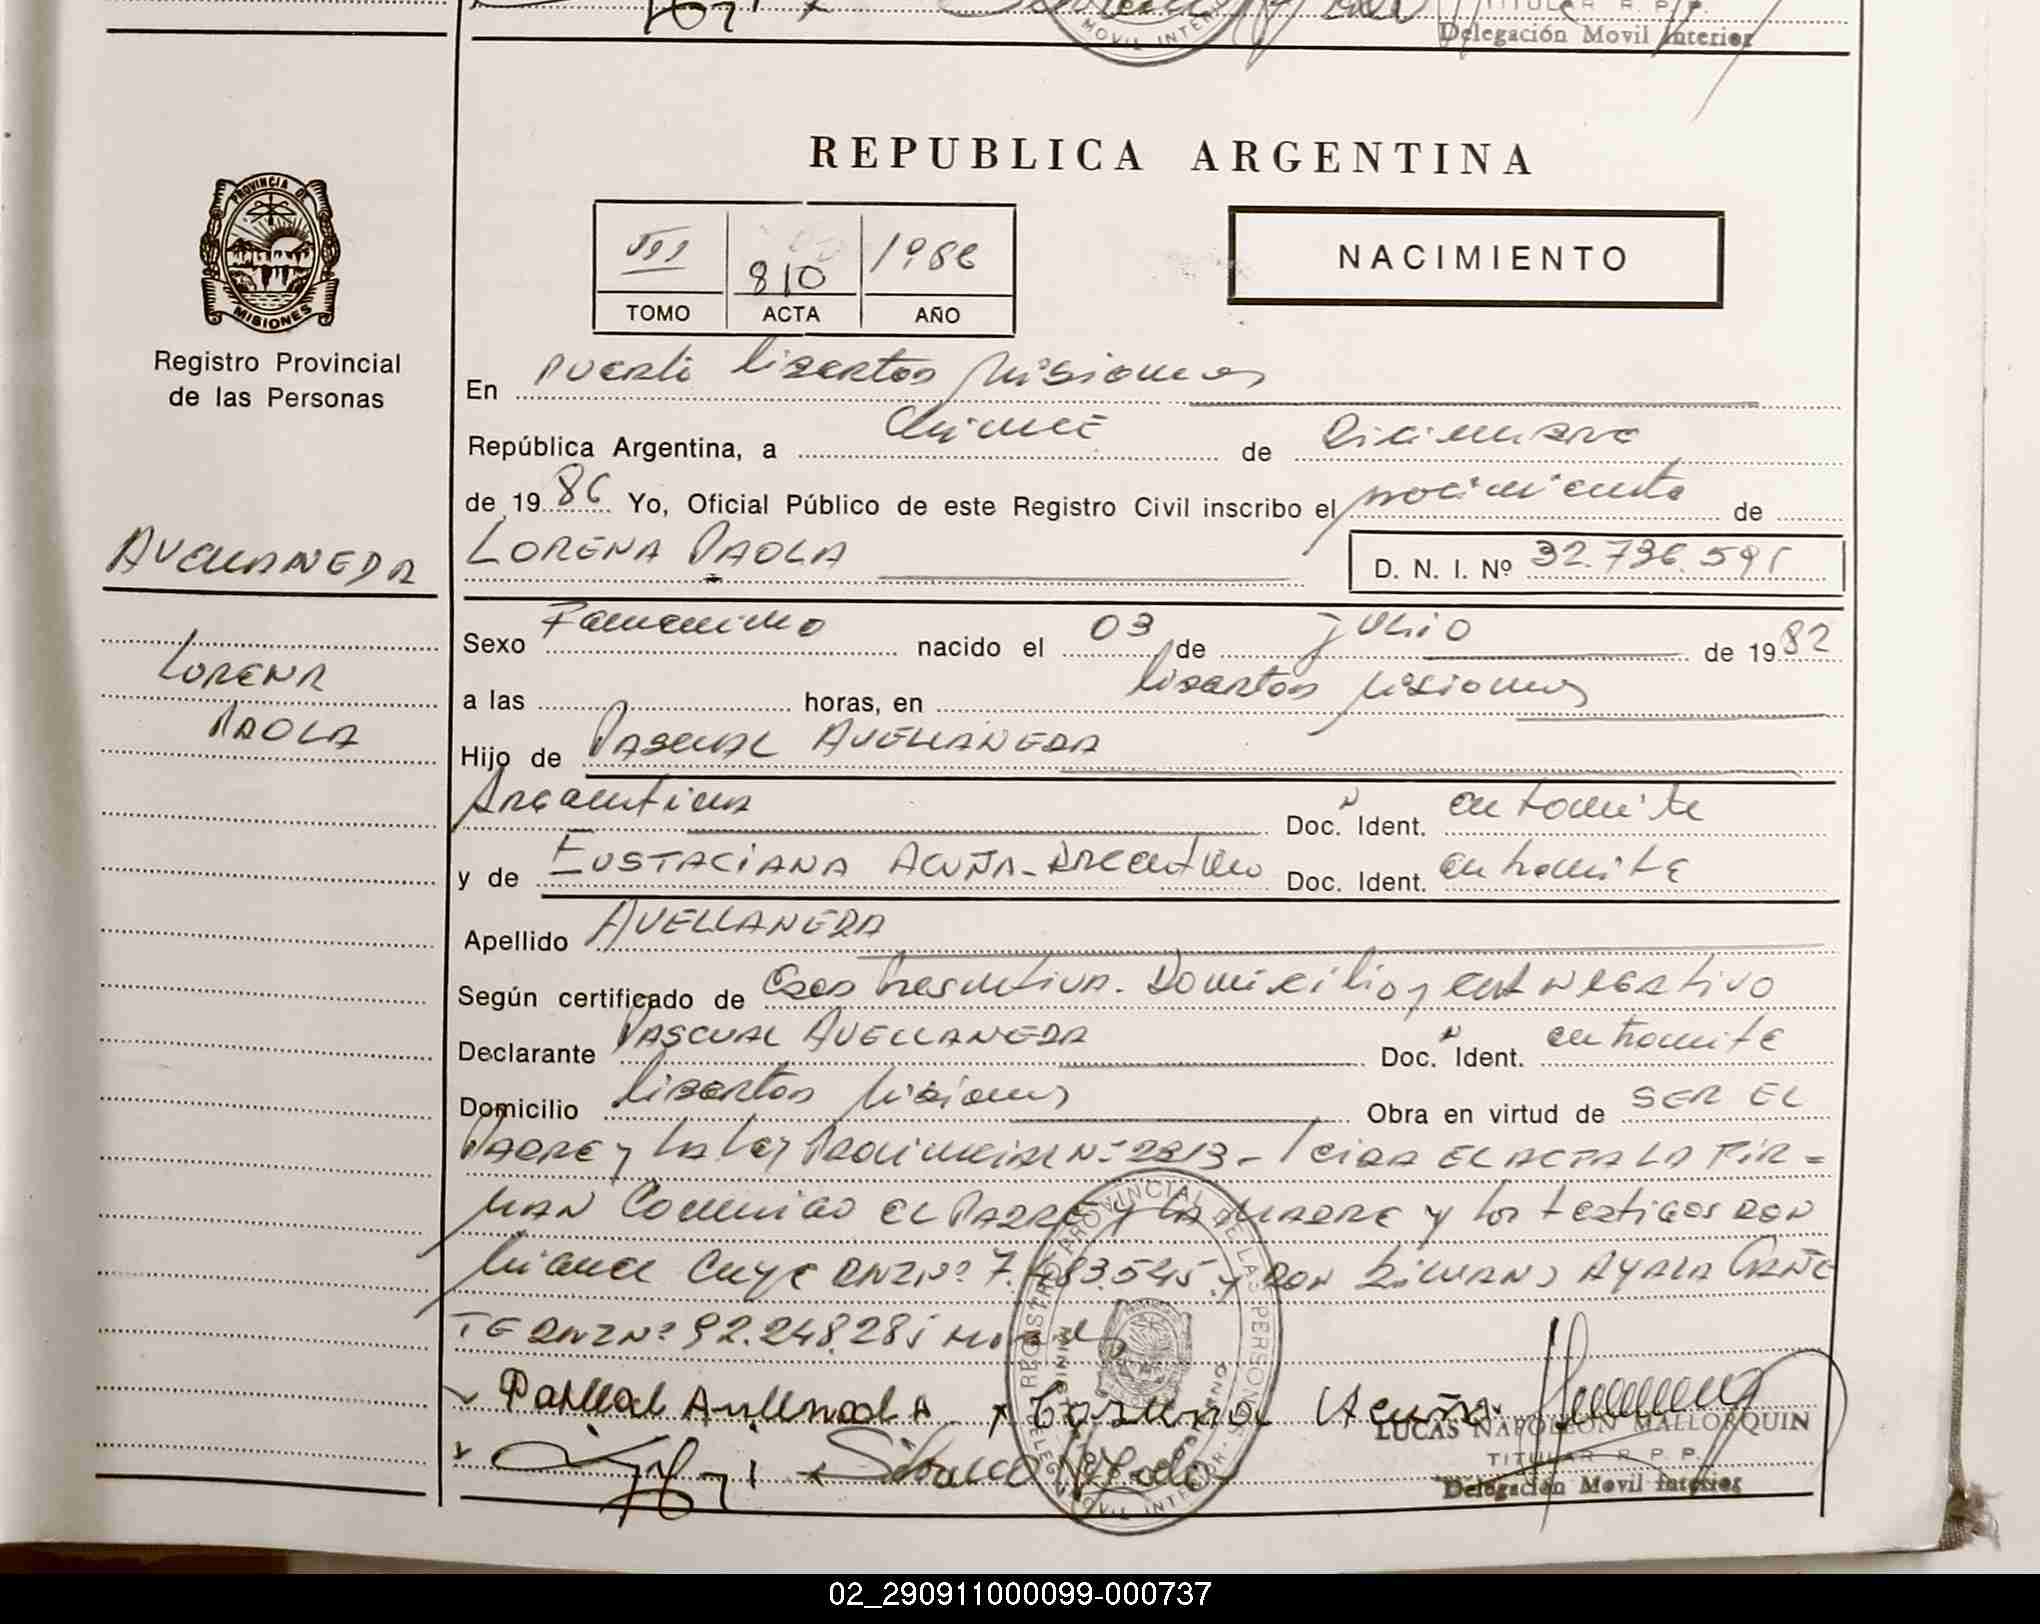 TITULAR R. P. P.
Delegación Movil Interior
MOVIL INTER
REPUBLICA ARGENTINA
PROVINCIA DE
MISIONES
Registro Provincial
de las Personas
VII 810 1986
TOMO ACTA AÑO
NACIMIENTO
En Puerto Libertad Misiones
República Argentina, a Quince de Diciembre
de 1986 Yo, Oficial Público de este Registro Civil inscribo el nacimiento de
AVELLANEDA
LORENA PAOLA D. N. I. Nº 32.736.591
Sexo Femenino nacido el 03 de julio de 1982
LORENA
PAOLA
a las horas, en Libertad Misiones
Hijo de PASCUAL AVELLANEDA
Argentina Doc. Ident. en tramite
y de EUSTACIANA ACUÑA - Argentina Doc. Ident. en tramite
Apellido AVELLANEDA
Según certificado de Domicilio y cert Negativo
Declarante PASCUAL AVELLANEDA Doc. Ident. en tramite
Domicilio Libertad Misiones Obra en virtud de SER EL
PADRE y la Ley Provincial Nº 2213 - Leida EL ACTA LA FIR=
MAN Conmigo EL PADRE y LA MADRE y los testigos DON
DNI Nº 7.483.545 y DON SILVANO AYALA CAÑE
TE DNI Nº 92.248.285
Acuña
LUCAS NAPOLEON MALLORQUIN
TITULAR R. P. P.
Delegación Movil Interior
REGISTRO PROVINCIAL DE LAS PERSONAS
02_290911000099-000737